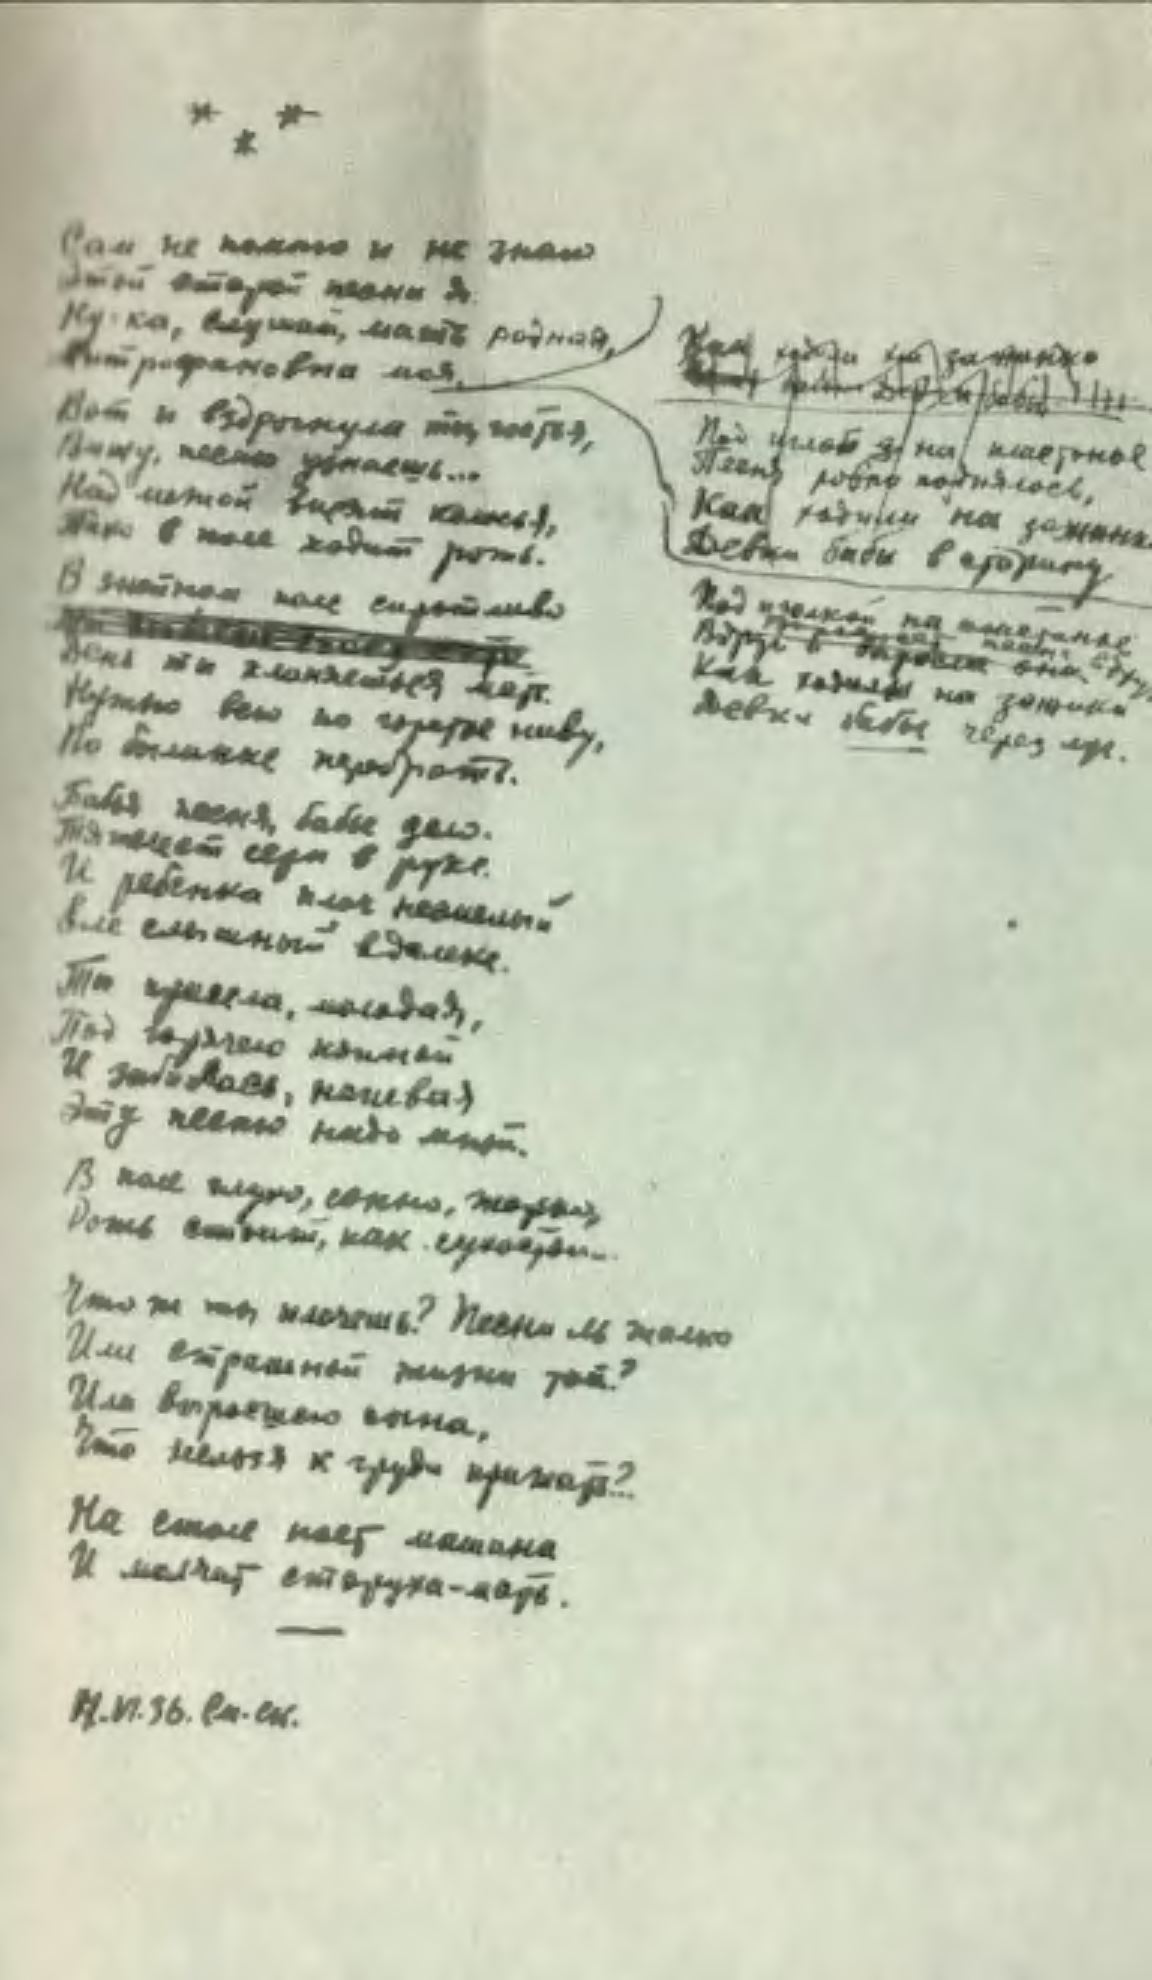 * * *
Сам не помню и не знаю
Этой старой песни я.
Ну-ка, слушай, мать родная,
Митрофановна моя.
Вот и вздрогнула ты, гостья,
Вижу, песню узнаешь...
Над межой висят колосья,
Тихо в поле ходит рожь.
В знойном поле сиротливо
День ты кланяешься, мать.
Нужно всю по горстке ниву,
По былинке перебрать.
Бабья песня, бабье дело.
Тяжелеет серп в руке.
И ребенка плач несмелый
Еле слышный вдалеке.
Ты присела, молодая,
Под горячею копной
И забылась, напевая
Эту песню надо мной.
В поле глухо, сонно, жарко,
Рожь стоит, как сухостой...
Что ж ты плачешь? Песни ль жалко
Или страшной жизни той?
Или выросшего сына,
Что нельзя к груди прижать?..
На столе поет машина
И молчит старуха-мать.
VI.36. См-ск.
Как ходили на зажинки
Под иглой на пластинке
Песня ровно поднялось,
Как ходили на зажинки
Девки бабы в старину
Под иголкой на пластинке
Вдруг
Как ходили на зажинки
Девки бабы через луг.